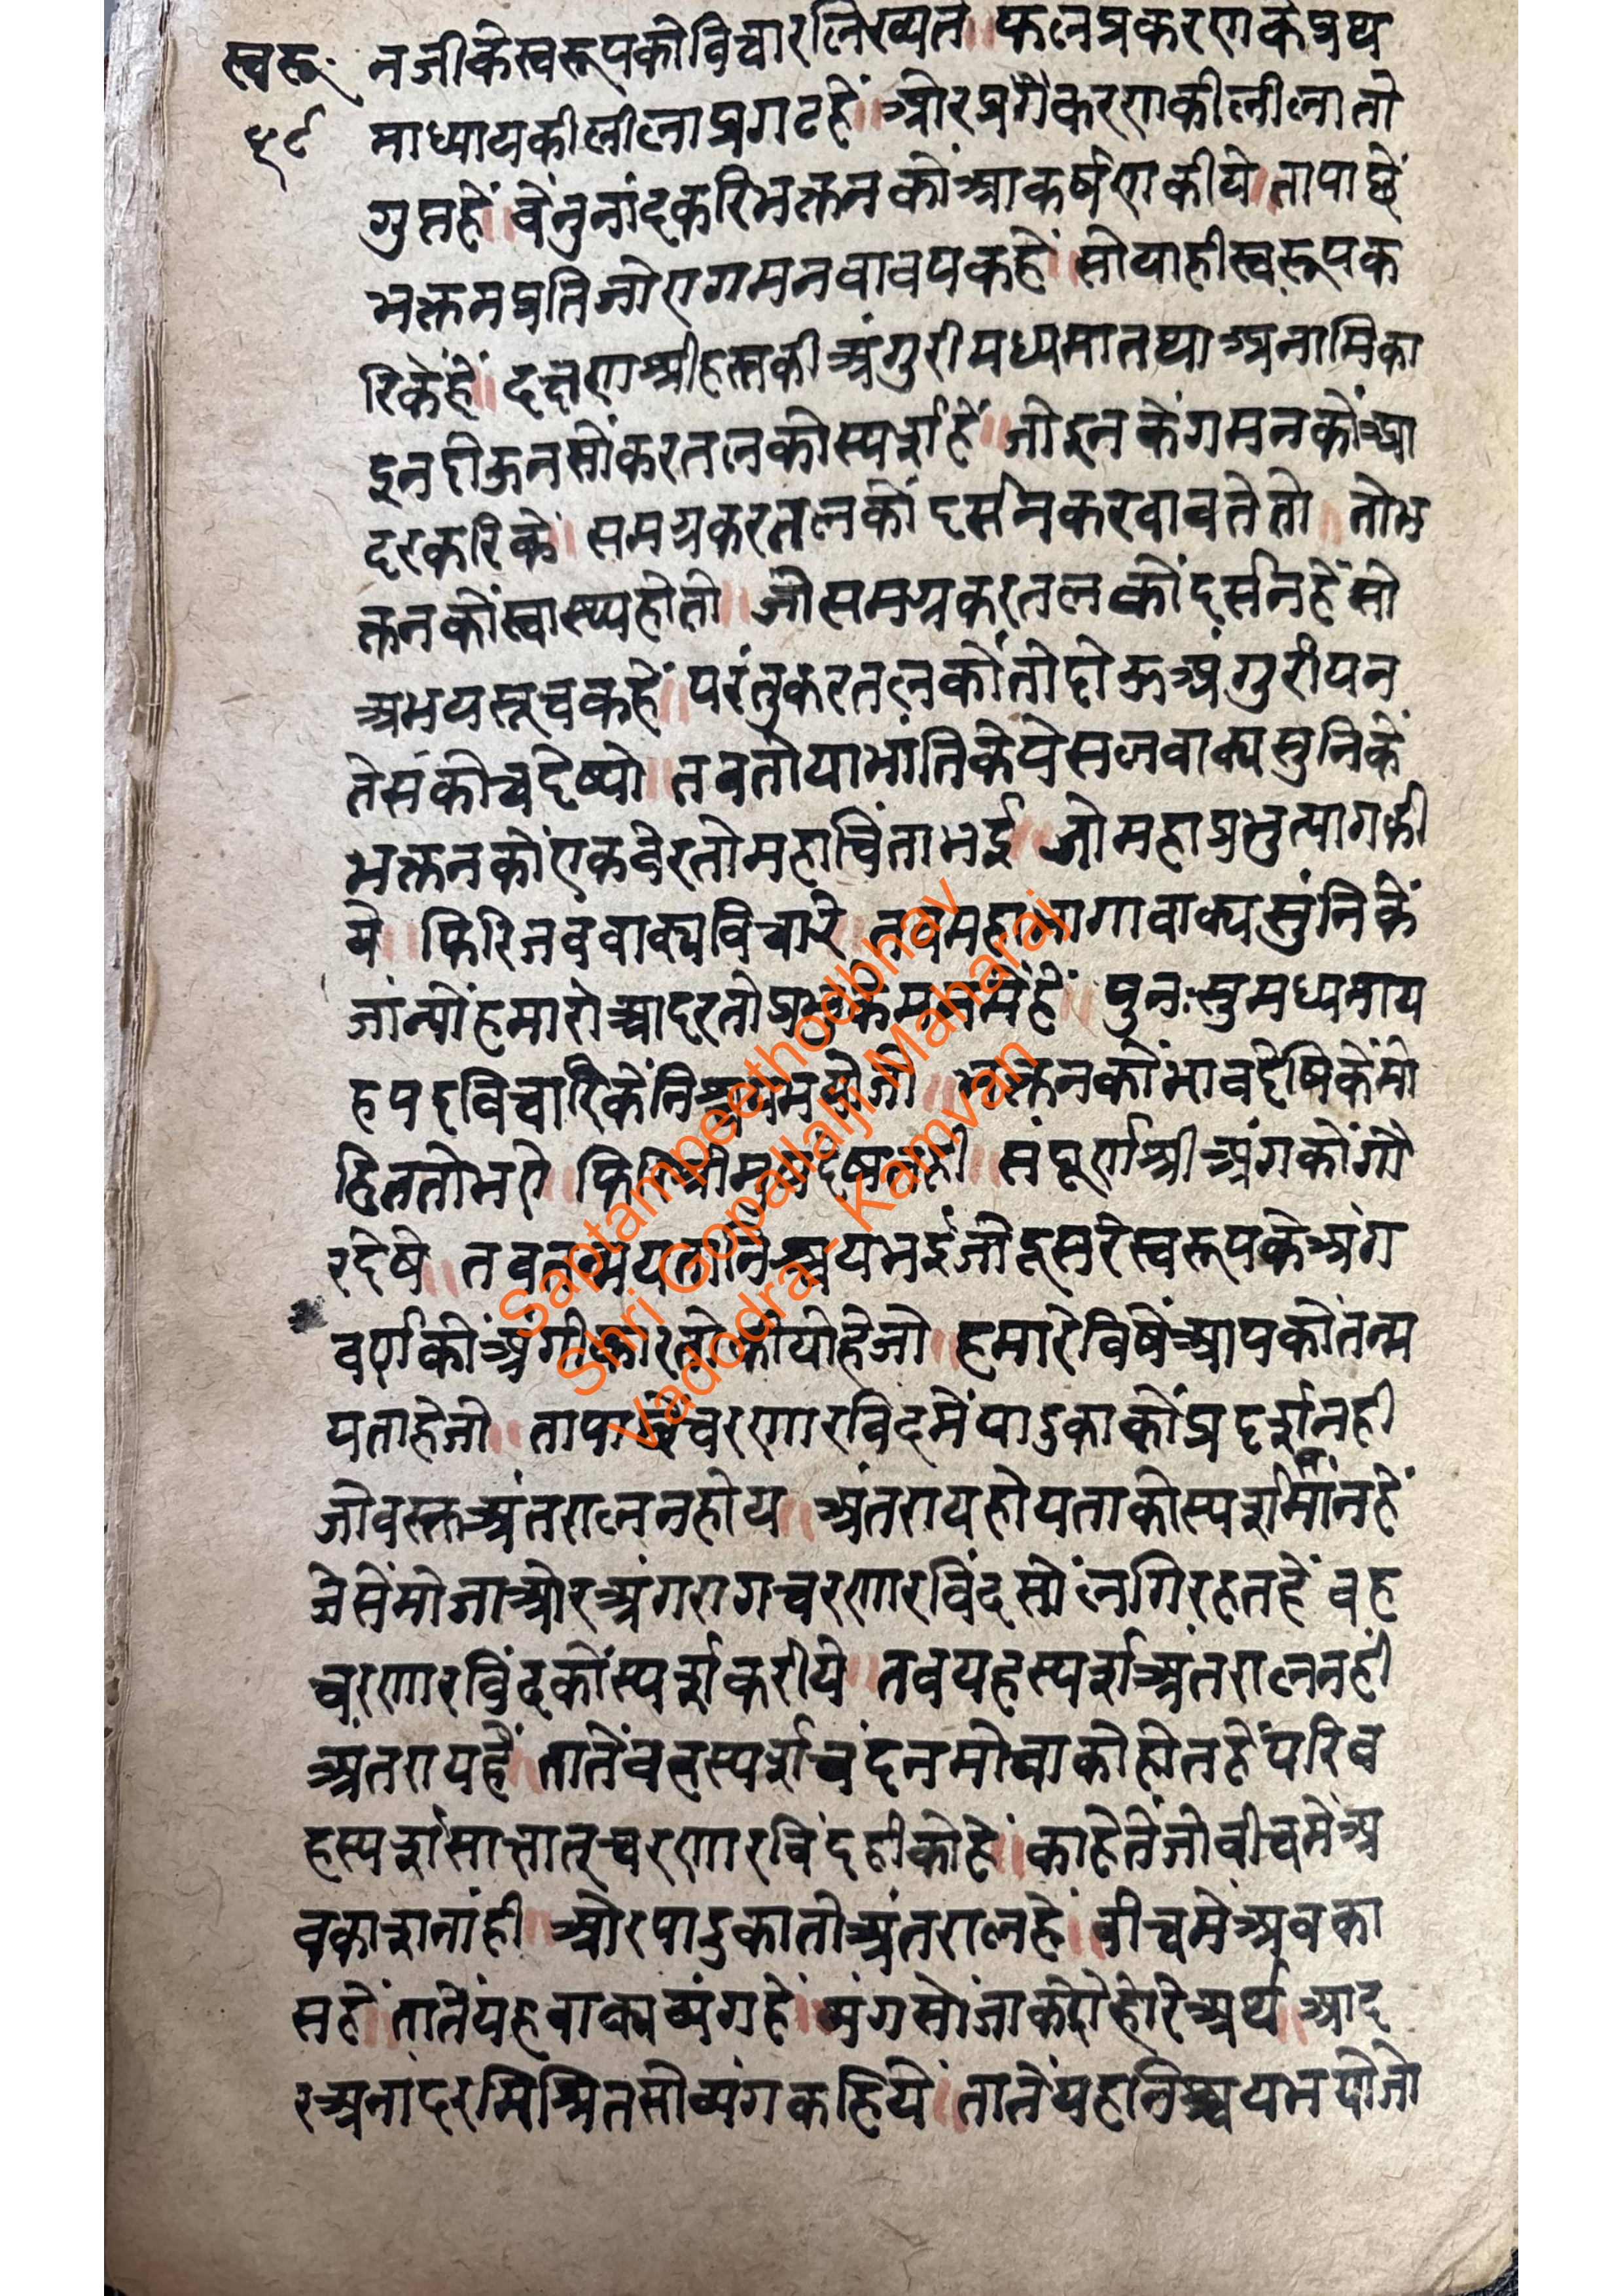 स्वरू. नजीकेस्वरूपकोविचारलिख्यते ॥ फलप्रकरणकेप्रथ
५९ माध्यायकीलीलाप्रगटहें ॥ ओरप्रगैकरणकीलीलातो
गुप्तहें ॥ वेंनुनांदकरिभक्तनकोंआकर्षणकीये ॥ तापाछें
भक्तनप्रतिजोएगमनवावयकहें ॥ सोयाहीस्वरूपक
रिकेंहें ॥ दक्षणश्रीहस्तकीअंगुरीमध्यमातथाअनामिका
इनदोऊनसोंकरतलकोस्पर्शहें ॥ जोइनकेंगमनकोंआ
दरकरिकें ॥ समग्रकरतलकोंदर्सनकरवावतेतो ॥ तोभ
क्तनकोंस्वास्थ्यहोतो ॥ जोसमग्रकरतलकोंदर्सनहेंसो
अभयसूचकहें ॥ परंतुकरतलकोंतोदोऊअंगुरीयन
तेसंकोचदेष्यो ॥ तबतोयाभांतिकेपेसलवाक्यसुनिकें
भक्तनकोंएकवेरतोमहाचिंताभई ॥ जोमहाप्रभुत्यागकी
ये ॥ फिरिजबंवाक्यविचारे ॥ तबमहाभागावाक्यसुंनिकें
जांन्योंहमारोआदरतोप्रभुकेमनमेंहें ॥ पुनःसुमध्यमाय
हपदविचारिकेंनिश्चयभयोजो ॥ भक्तनकोंभावदेषिकेंमो
हिततोभए ॥ फिरिश्रीमुखदेष्यतही ॥ संपूर्णश्रीअंगकोंगौ
रदेषे ॥ तबतन्मेयतानिश्चयभईजोदूसरेस्वरूपकेअंग
वर्णकोंअंगीकारतोकीयोहेजो ॥ हमारेविषेंआपकोतन्म
यताहेजो ॥ तापाछेंचरणारविंदमेंपादुकाकोंप्रदर्शनही
जोवस्तअंतरालनहोय ॥ अंतरायहोयताकोस्पर्शमांनहें
जेसेंमोजाओरअंगरागचरणारविंदसोंलगिरहतहें वह
चरणारविंदकोंस्पर्शकरीये ॥ तबयहस्पर्शअंतरालनहीं
अंतरायहै ॥ तातेंवहस्पर्शचंदनमोजाकोहोतहेंपरिव
हस्पर्शसाक्षातूचरणारविंदहीकोहे ॥ काहेतेंजोबीचमेंअ
वकाशनांही ॥ ओरपादुकातोअंतरालहे ॥ बीचमेंअवका
सहें ॥ तातेंयहवाक्यव्यंगहें ॥ व्यंगसोंजाकेदोहोरेअर्थ ॥ आद
रअनांदरमिश्रितसोव्यंगकहिये ॥ तातेंयहनिश्चयभयोजो
Saptampeethodbhav
Shri Gopallalji Maharaj
Vadodra - Kamvan